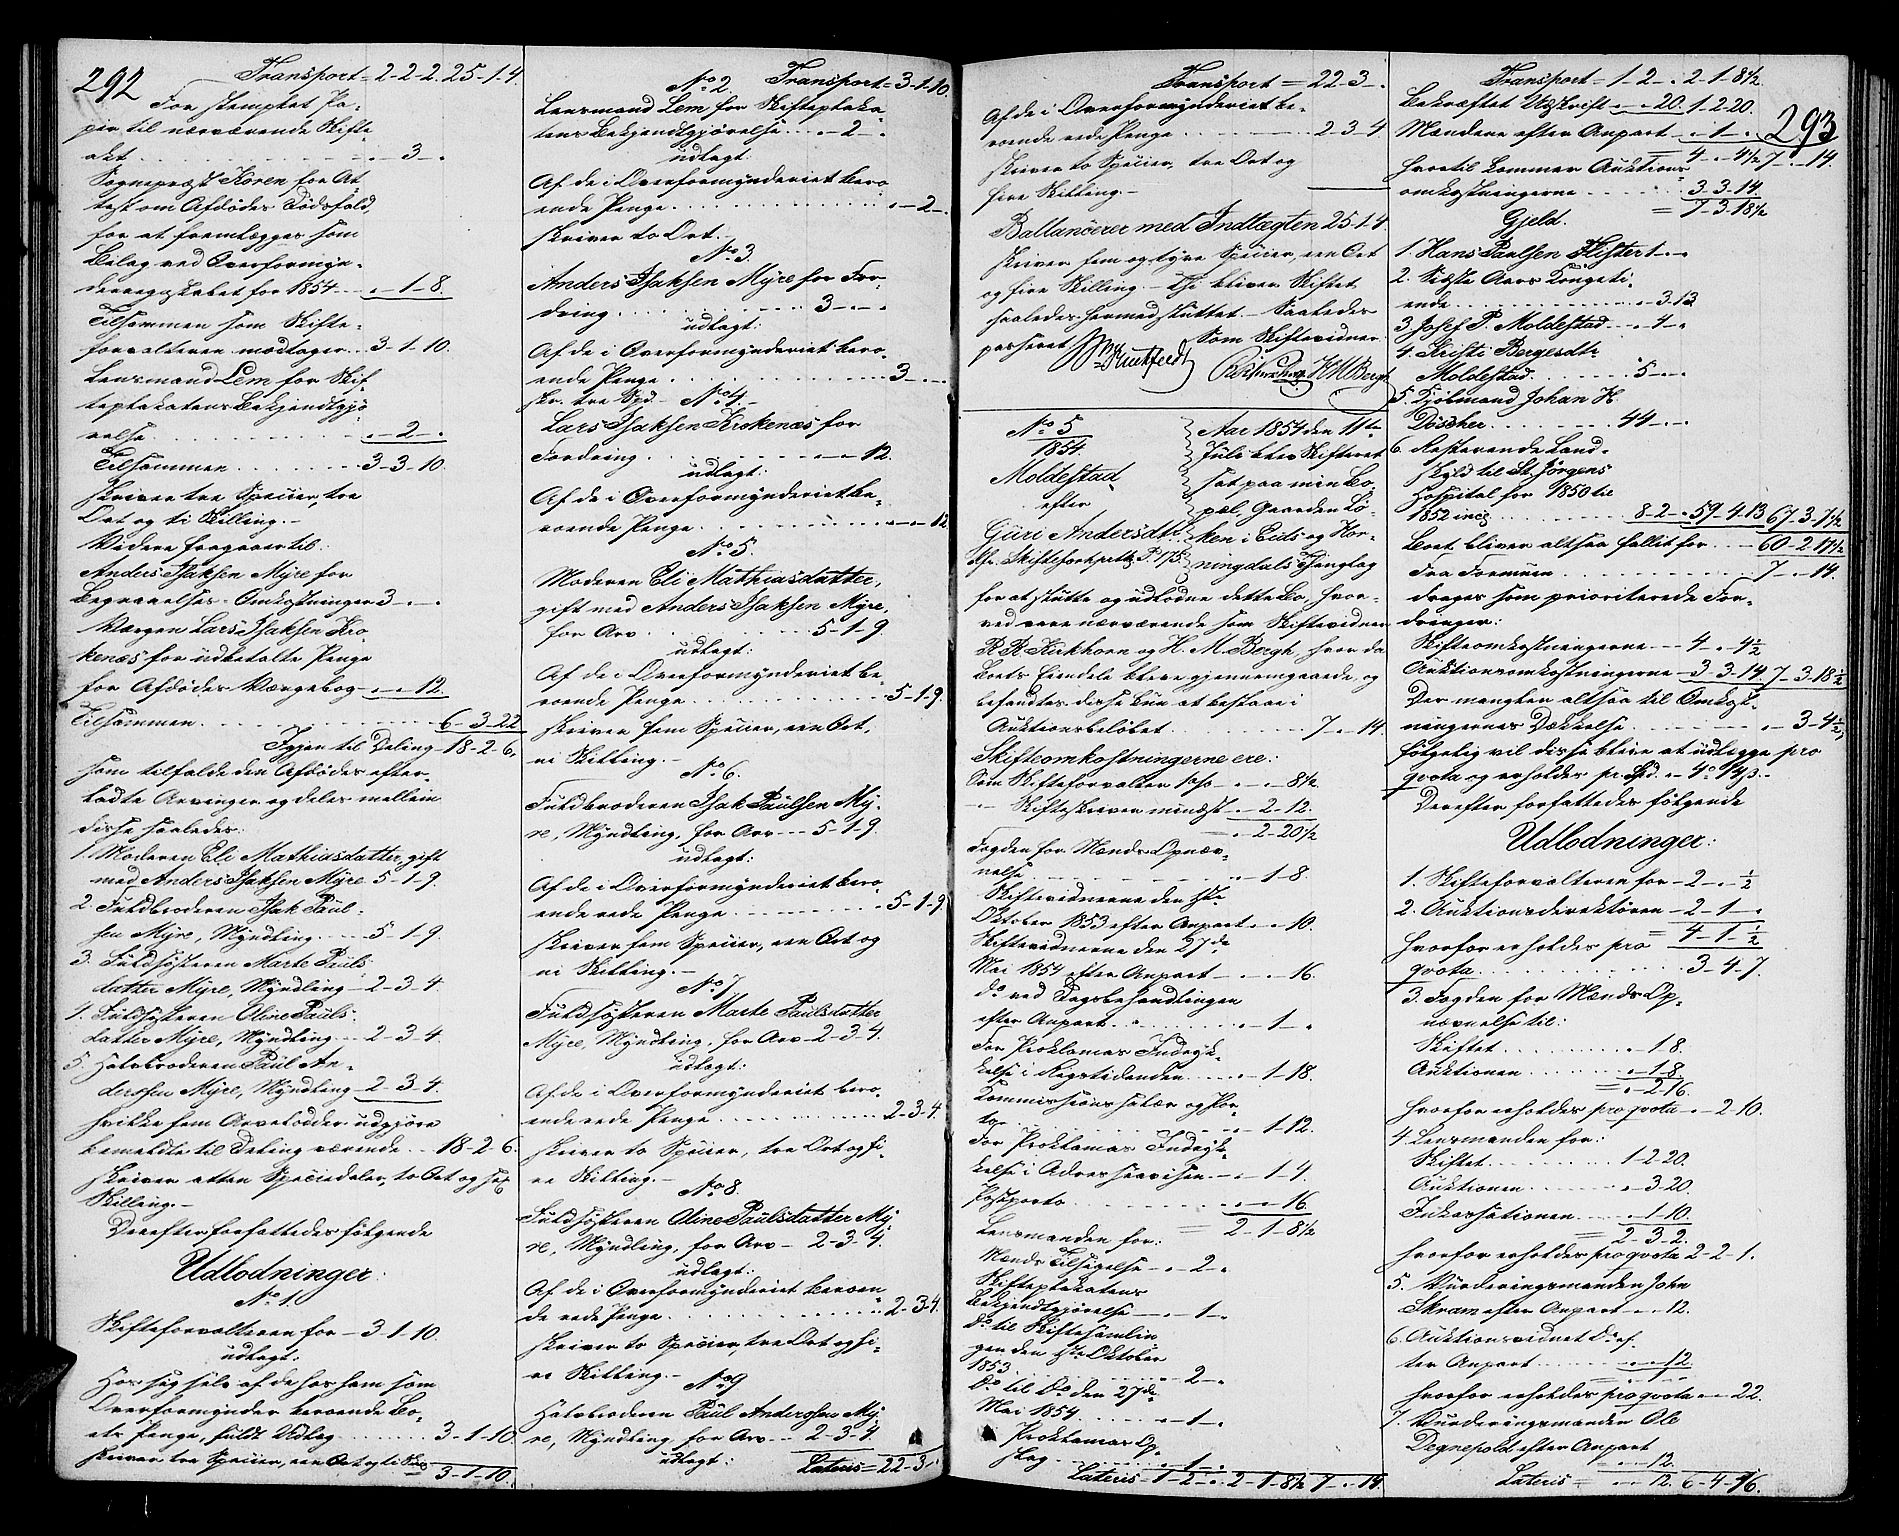 292
Transport = 2-2-2. 25-1-4.
For stemplet Pa-
pir til nærværende Skifte
akt . . . . „-3-„
Sognepræst Koren for At-
test om Afdødes Dødsfald,
for at fremlægges som
Bilag ved Overformyn-
derregnskabet for 1854 . . „-1-8.
Tilsammen som Skifte-
forvalteren modtager . . 3-1-10.
Lensmand Lem for Skif-
teplakatens Bekjendtgjø-
relse . . . . „-2-„
Tilsammen . . . . 3-3-10.
skriver tre Specier, tre
Ort og ti Skilling.-
Videre fragaaer til:
Anders Isaksen Myre for
Begravelses-Omkostninger 3-„-„
Værgen Lars Isaksen Kro-
kenæs for udbetalte Penge
for Afdødes Værgebog - „-„-12.
Tilsammen . . . . 6-3-22
Igjen til Deling 18-2-6,
som tilfalde den Afdødes efter-
ladte Arvinger og deles mellem
disse saaledes:
1. Moderen Eli Mathiasdatter, gift
med Anders Isaksen Myre 5-1-9.
2. Fuldbroderen Isak Paul-
sen Myre, Myndling . . . 5-1-9.
3. Fuldsøsteren Marte Pauls-
datter Myre, Myndling - 2-3-4.
4. Fuldsøsteren Oline Pauls-
datter Myre, Myndling . . 2-3-4.
5. Halvbroderen Paul An-
derssen Myre, Myndling - 2-3-4.
hvilke fem Arvelodder udgjøre
bemeldte til Deling værende . . 18-2-6.
skriver atten Speciedaler, to Ort og sex
Skilling.-
Derefter forfattedes følgende
Udlodninger:
No 1.
Skifteforvalteren for - 3-1-10.
udlagt:
Hos sig selv af de hos ham som
Overformynder beroende Bo-
ets Penge, fuldt Vedlag . . . 3-1-10.
skriver tre Specier, een Ort og ti Skill.
3-1-10.
Transport = 3-1-10.
No 2.
Lensmand Lem for Skifteplaka-
tens Bekjendtgjørelse . . „-2-„
udlagt:
Af de i Overformynderiet bero-
ende Penge . . . . „-2-„
skriver to Ort.-
No 3.
Anders Isaksen Myre for For-
dring . . . . 3-„-„
udlagt:
Af de i Overformynderiet bero-
ende Penge . . . . 3-„-„
skr. tre Spd.- No 4.-
Lars Isaksen Krokenæs for
Fordring . . . . „-„-12.
udlagt:
Af de i Overformynderiet be-
roende Penge . . . . „-„-12
No 5.
Moderen Eli Mathiasdatter,
gift med Anders Isaksen Myre,
for Arv . . . . 5-1-9.
udlagt:
Af de i Overformynderiet be-
roende Penge . . . . 5-1-9.
skriver fem Specier, een Ort,
ni Skilling.-
No 6.
Fuldbroderen Isak Paulsen My-
re, Myndling, for Arv . . . 5-1-9.
udlagt:
Af de i Overformynderiet bero-
ende rede Penge . . . . 5-1-9
skriver fem Specier, een Ort og
ni Skilling.-
No 7
Fuldsøsteren Marte Paulsdatter
Myre, Myndling, for Arv - 2-3-4.
udlagt:
Af de i Overformynderiet bero-
ende rede Penge . . . . 2-3-4.
skriver to Specier, tre Ort og fi-
re Skilling.-
No 8.
Fuldsøsteren Oline Paulsdatter My-
re, Myndling, for Arv - 2-3-4.
udlagt:
Af de i Overformynderiet beroen-
de rede Penge . . . . 2-3-4.
skriver to Specier, tre Ort og fi-
re Skilling.-
No 9
Halvbroderen Paul Anderssen My-
re, Myndling, for Arv . . . 2-3-4.
udlagt: Lateris = 22-3-„
Transport = 22-3-„
Af de i Overformynderiet be-
roende rede Penge . . . . 2-3-4
skriver to Specier, tre Ort og
fire Skilling.-
Ballancerer med Indtægten 25-1-4.
skriver fem og tyve Specier, een Ort
og fire Skilling.- Thi bliver Skiftet
saaledes hermed sluttet.- Saaledes
passeret
Som Skiftevidner
H M Bergh
No 5
1854.
Moldestad
efter
Guri Andersdtr.
Cfr. Skifteforhprtk. P. 175.
Aar 1854 den 11te
Juli blev Skifteret
sat paa min Bo-
pæl, Gaarden Lø-
ken i Eids og Hor-
ningdals Thinglag
for at slutte og udlodne dette Bo, hvor-
ved vare nærværende som Skiftevidner
R R Kirkhorn og H. M. Bergh, hvor da
Boets Eiendele bleve gjennemgaaede, og
befandtes disse kun at bestaae i
Auktionsbeløbet . . . . 7-„-14.
Skifteomkostningerne ere:
Som Skifteforvalter 1 pCto - „-„-8½
„ Skifteskriver mindst - „-2-12.
= „-2-20½
Fogden for Mænds Opnæv-
nelse . . . . „-1-8.
Skiftevidnerne den 1ste
Oktober 1853 efter Anpart „-„-10.
Skiftevidnerne den 27de
Mai 1854 efter Anpart - „-„-16.
do ved Dagsbehandlingen
efter Anpart . . . . „-1-„
For Proklamas Indryk-
kelse i Rigstidenden . . „-1-18.
Kommissions salær og Por-
to . . . . „-1-12.
For Proklamas Indryk-
kelse i Adresseavisen . „-1-4.
Postporto . . . . „-„-16.
= 2-1-8½
Lensmanden for:
Mænds Tilsigelse . . „-2-„
Skifteplakatens
Bekjendtgjørelse - „-1-„
Do til Skiftesamlin-
gen den 1ste Oktober
1853 . . . . „-2-„
Do til Do den 27de
Mai 1854 . . . . „-1-„
„ Proklamas Op-
slag . . . . „-1-„
Lateris = 1-2-„ 2-1-8½ 7-„-14.
293
Transport = 1-2-„ 2-1-8½.
Bekræftet Udskrift . „-„-20. 1-2-20.
Mændene efter Anpart - „-1-„
= 4-„-4½ 7-„-14.
hvortil kommer Auktions-
omkostningerne . . . . 3-3-14.
= 7-3-18½
Gjeld.
1. Hans Paulsen Flister 1-„-„
2. Sidste Aars Kongeti-
ende . . . . „-3-13
3. Josef P. Moldestad . . „-4-„
4. Kristi Bergesdtr
Moldestad . . . . 5-„-„
5. Kjøbmand Johan H.
Döscher . . . . 44-„-„
6. Resterende Land-
skyld til St. Jørgens
Hospital for 1850 til
1852 incl. . . . 8-2-„ 59-4-13 67-3-7½
Boet bliver altsaa fallit for . . - 60-2-17½
Fra Formuen . . . . 7-„-14.
drages som prioriterede For-
dringer:
Skifteomkostningerne - 4-„-4½
Auktionsomkostningerne - 3-3-14. 7-3-18½
Der mangler altsaa til Omkost-
ningernes Dækkelse . . . . „-3-4½,
følgelig vil disse blive at udlægge pro
qvota og erholdes pr. Spd.
Derefter forfattedes følgende
Udlodninger:
1. Skifteforvalteren for - 2-„-½
2. Auktionsdirektøren - 2-1-„
= 4-1-½
hvorfor erholdes pro
qvota . . . . 3-4-7.
3. Fogden for Mænds Op-
nævnelse til:
Skiftet . . . . „-1-8.
Auktionen . . . . „-1-8.
= „-2-16.
hvorfor erholdes pro qvota „-2-10.
4. Lensmanden for:
Skiftet . . . . 1-2-20.
Auktionen . . . . „-3-20.
Inkassationen . . . „-1-10.
= 2-3-2.
hvorfor erholdes pro qvota 2-2-1.
5. Vurderingsmanden John
Skram efter Anpart - „-„-12.
6. Auktionsvidnet Do ef-
ter Anpart . . . . „-„-12.
= „-1-„
hvorfor erholdes pro qvota „-„-22.
7. Vurderingsmanden Ole
Degnepoldt efter Anpart
. . . . „-„-12.
Lateris = „-„-12. 6-4-16.